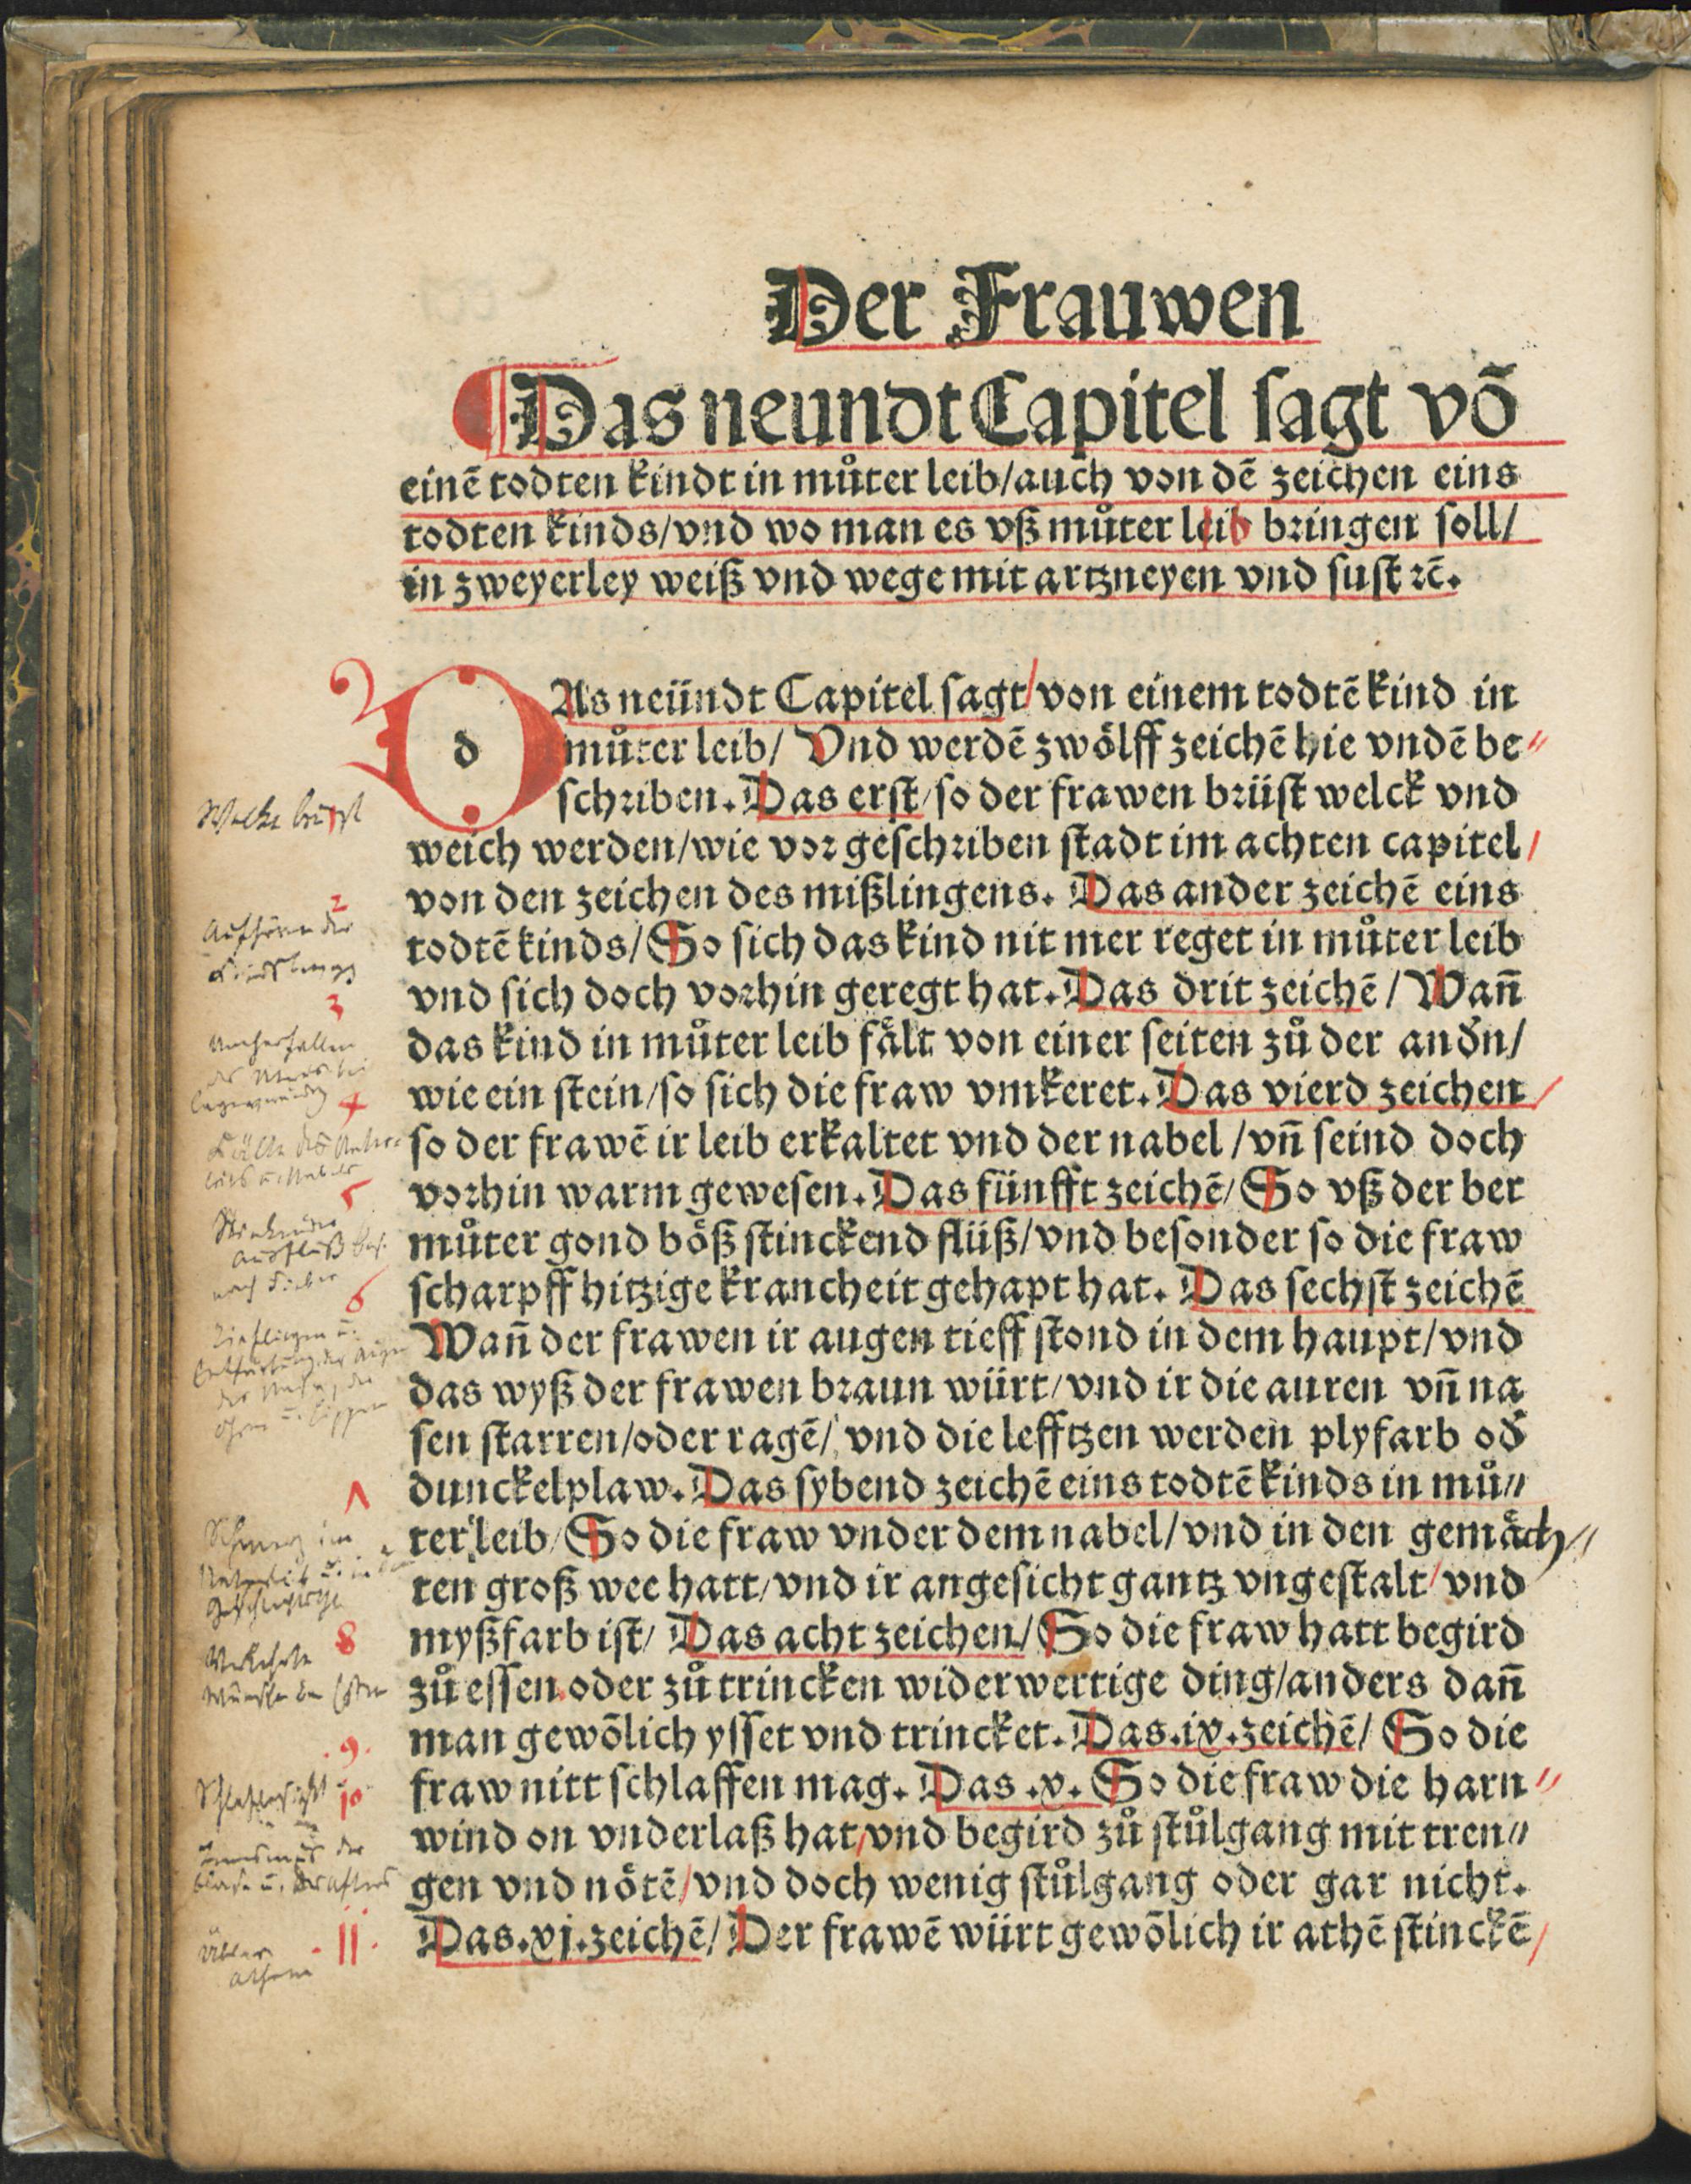 Der Frauwen
Das neundt Capitel ſagt vō
einē todten kindt in můter leib/auch von dē zeichen eins
todten kinds/vnd wo man es vß můter leib bringen ſoll/
in zweyerley weiß vnd wege mit artzneyen vnd ſuſt ꝛc̄.
d As neündt Capitel ſagt/von einem todtē kind in
můter leib/ Vnd werdē zwölff zeichē hie vndē be⸗
ſchꝛiben. Das erſt/ſo der frawen bꝛüſt welck vnd
Welke brüst
weich werden/wie voꝛ geſchꝛiben ſtadt im achten capitel/
von den zeichen des mißlingens. Das ander zeichē eins
2
Aufhören der
todtē kinds/So ſich das kind nit mer reget in můter leib
vnd ſich doch voꝛhin geregt hat. Das drit zeichē/Wañ
3
Umherfallen
das kind in můter leib fält von einer ſeiten zů der andn̄/
wie ein ſtein/ſo ſich die fraw vmkeret. Das vierd zeichen/
4
Kälte des Unter⸗
leibs u. Nabels
ſo der frawē ir leib erkaltet vnd der nabel/vñ ſeind doch
voꝛhin warm geweſen. Das fünfft zeichē/So vß der ber
5
Stinkender
Ausfluß bes.
nach Fieber
můter gond böß ſtinckend flüß/vnd beſonder ſo die fraw
ſcharpff hitzige kranckheit gehapt hat. Das ſechſt zeichē
6
Tiefliegen u.
Entfärbung der Augen
der Nase, der
Ohren u. Lippen
Wañ der frawen ir augen tieff ſtond in dem haupt/vnd
das wyß der frawen bꝛaun würt/vnd ir die auren vñ na
ſen ſtarren/oder ragē/vnd die lefftzen werden plyfarb od̄
dunckelplaw. Das ſybend zeichē eins todtē kinds in mů⸗
7
Schmerz im
Unterleib u. in den
ter leib/So die fraw vnder dem nabel/vnd in den gemäch⸗
ten groß wee hatt/vnd ir angeſicht gantz vngeſtalt/vnd
myßfarb iſt/ Das acht zeichen/So die fraw hatt begird
8
Verkehrte
zů eſſen oder zů trincken widerwertige ding/anders dañ
man gewōlich yſſet vnd trincket. Das.ix.zeichē/ So die
9
Schlaflosigkeit
fraw nitt ſchlaffen mag. Das.x. So die fraw die harn⸗
10
Tenesmus der
Blase u. des Afters
wind on vnderlaß hat/vnd begird zů ſtůlgang mit tren⸗
gen vnd nötē/vnd doch wenig ſtůlgang oder gar nicht.
Das.xj.zeichē/Der frawē würt gewōlich ir athē ſtinckē/
11
Übler
Athem